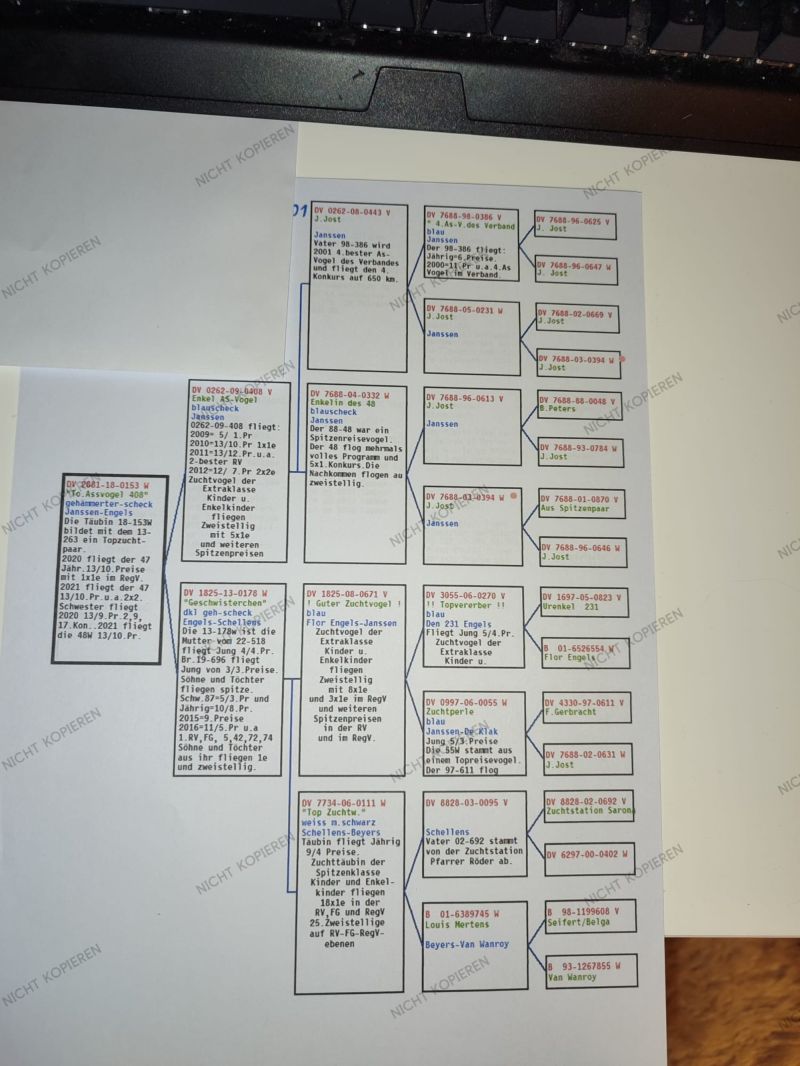 NICHT KOPIEREN
01
DV 2081-18-0153 W
"To.Assvogel 408"
gehämmerter-scheck
Janssen-Engels
Die Täubin 18-153W
bildet mit dem 13-
263 ein Topzucht-
paar.
2020 fliegt der 47
Jähr.13/10.Preise
mit 1x1e im RegV.
2021 fliegt der 47
13/10.Pr.u.a.2x2.
Schwester fliegt
2020 13/9.Pr.2,9,
17.Kon..2021 fliegt
die 48W 13/10.Pr.
DV 0262-09-0408 V
Enkel AS-Vogel
blauscheck
Janssen
0262-09-408 fliegt:
2009= 5/ 1.Pr
2010=13/10.Pr 1x1e
2011=13/12.Pr.u.a.
2-bester RV
2012=12/ 7.Pr 2x2e
Zuchtvogel der
Extraklasse
Kinder u.
Enkelkinder
fliegen
Zweistellig
mit 5x1e
und weiteren
Spitzenpreisen
DV 1825-13-0178 W
"Geschwisterchen"
dkl geh-scheck
Engels-Schellens
Die 13-178w ist die
Mutter vom 22-518
fliegt Jung 4/4.Pr.
Br.19-696 fliegt
Jung von 3/3.Preise.
Söhne und Töchter
fliegen spitze.
Schw.87=5/3.Pr und
Jährig=10/8.Pr.
2015=9.Preise
2016=11/5.Pr u.a
1.RV,FG, 5,42,72,74
Söhne und Töchter
aus ihr fliegen 1e
und zweistellig.
DV 0262-08-0443 V
J.Jost
Janssen
Vater 98-386 wird
2001 4.bester As-
Vogel des Verbandes
und fliegt den 4.
Konkurs auf 650 km.
DV 7688-04-0332 W
Enkelin des 48
blauscheck
Janssen
Der 88-48 war ein
Spitzenreisevogel.
Der 48 flog mehrmals
volles Programm und
5x1.Konkurs.Die
Nachkommen flogen au
zweistellig.
DV 1825-08-0671 V
! Guter Zuchtvogel !
blau
Flor Engels-Janssen
Zuchtvogel der
Extraklasse
Kinder u.
Enkelkinder
fliegen
Zweistellig
mit 8x1e
und 3x1e im RegV
und weiteren
Spitzenpreisen
in der RV
und im RegV.
DV 7734-06-0111 W
"Top Zuchtw."
weiss m.schwarz
Schellens-Beyers
Täubin fliegt Jährig
9/4 Preise.
Zuchttäubin der
Spitzenklasse
Kinder und Enkel-
kinder fliegen
18x1e in der
RV,FG und RegV
25.Zweistellige
auf RV-FG-RegV-
ebenen
DV 7688-98-0386 V
" 4.As-V.des Verband
blau
Janssen
Der 98-386 fliegt:
Jährig=6.Preise.
2000=11.Pr u.a.4.As
Vogel im Verband.
DV 7688-05-0231 W
J.Jost
Janssen
DV 7688-96-0613 V
J.Jost
Janssen
DV 7688-03-0394 W
J.Jost
Janssen
DV 3055-06-0270 V
!! Topvererber !!
blau
Den 231 Engels
Fliegt Jung 5/4.Pr.
Zuchtvogel der
Extraklasse
Kinder u.
DV 0997-06-0055 W
Zuchtperle
blau
Janssen-De Klak
Jung 5/3.Preise
Die 55W stammt aus
einem Topreisevogel.
Der 97-611 flog
DV 8828-03-0095 V
Schellens
Vater 02-692 stammt
von der Zuchtstation
Pfarrer Röder ab.
B 01-6389745 W
Louis Mertens
Beyers-Van Wanroy
DV 7688-96-0625 V
J. Jost
DV 7688-96-0647 W
J. Jost
DV 7688-02-0669 V
J.Jost
DV 7688-03-0394 W
J.Jost
DV 7688-88-0048 V
B.Peters
DV 7688-93-0784 W
J.Jost
DV 7688-01-0870 V
Aus Spitzenpaar
DV 7688-96-0646 W
J.Jost
DV 1697-05-0823 V
Urenkel 231
B 01-6526554 W
Flor Engels
DV 4330-97-0611 V
F.Gerbracht
DV 7688-02-0631 W
J.Jost
DV 8828-02-0692 V
Zuchtstation Saron
DV 6297-00-0402 W
B 98-1199608 V
Seifert/Belga
B 93-1267855 W
Van Wanroy